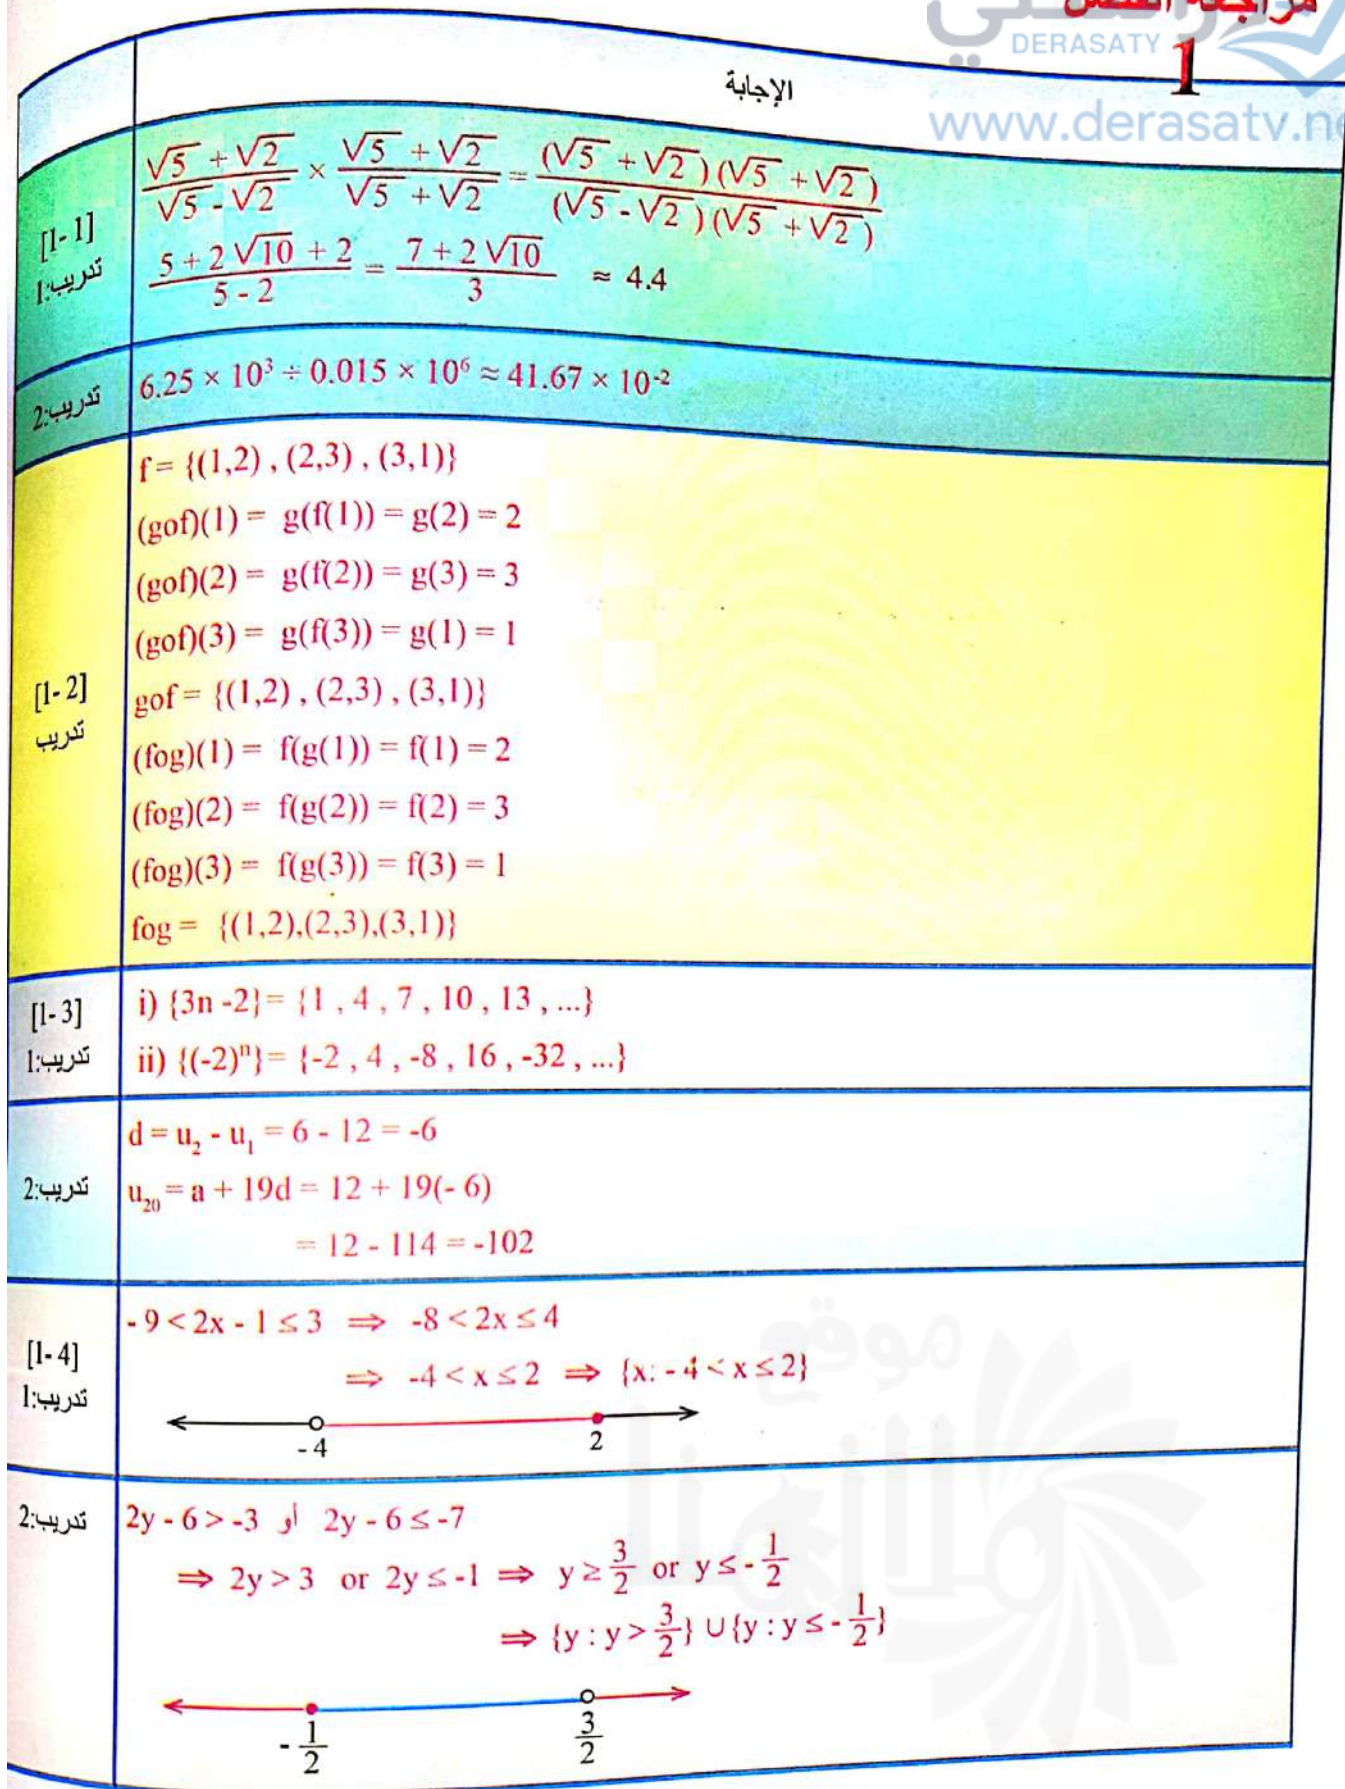 مراجعة الفصل
1
DERASATY
www.derasatv.ne
الإجابة
[1-1]
تدريب:1
\frac{√5 + √2}{√5 - √2} × \frac{√5 + √2}{√5 + √2} = \frac{(√5 + √2)(√5 + √2)}{(√5 - √2)(√5 + √2)}
\frac{5 + 2√10 + 2}{5 - 2} = \frac{7 + 2√10}{3} ≈ 4.4
تدريب:2
6.25 × 10³ ÷ 0.015 × 10⁶ ≈ 41.67 × 10⁻²
[1-2]
تدريب
f = {(1,2) , (2,3) , (3,1)}
(gof)(1) = g(f(1)) = g(2) = 2
(gof)(2) = g(f(2)) = g(3) = 3
(gof)(3) = g(f(3)) = g(1) = 1
gof = {(1,2) , (2,3) , (3,1)}
(fog)(1) = f(g(1)) = f(1) = 2
(fog)(2) = f(g(2)) = f(2) = 3
(fog)(3) = f(g(3)) = f(3) = 1
fog = {(1,2),(2,3),(3,1)}
[1-3]
تدريب:1
i) {3n -2} = {1 , 4 , 7 , 10 , 13 , ...}
ii) {(-2)ⁿ} = {-2 , 4 , -8 , 16 , -32 , ...}
تدريب:2
d = u₂ - u₁ = 6 - 12 = -6
u₂₀ = a + 19d = 12 + 19(- 6)
= 12 - 114 = -102
[1-4]
تدريب:1
- 9 < 2x - 1 ≤ 3 ⇒ -8 < 2x ≤ 4
⇒ -4 < x ≤ 2 ⇒ {x: - 4 < x ≤ 2}
- 4 2
تدريب:2
2y - 6 > -3 أو 2y - 6 ≤ -7
⇒ 2y > 3 or 2y ≤ -1 ⇒ y ≥ \frac{3}{2} or y ≤ -\frac{1}{2}
⇒ {y : y > \frac{3}{2}} ∪ {y : y ≤ -\frac{1}{2}}
-\frac{1}{2} \frac{3}{2}
موقع
ملازمنا